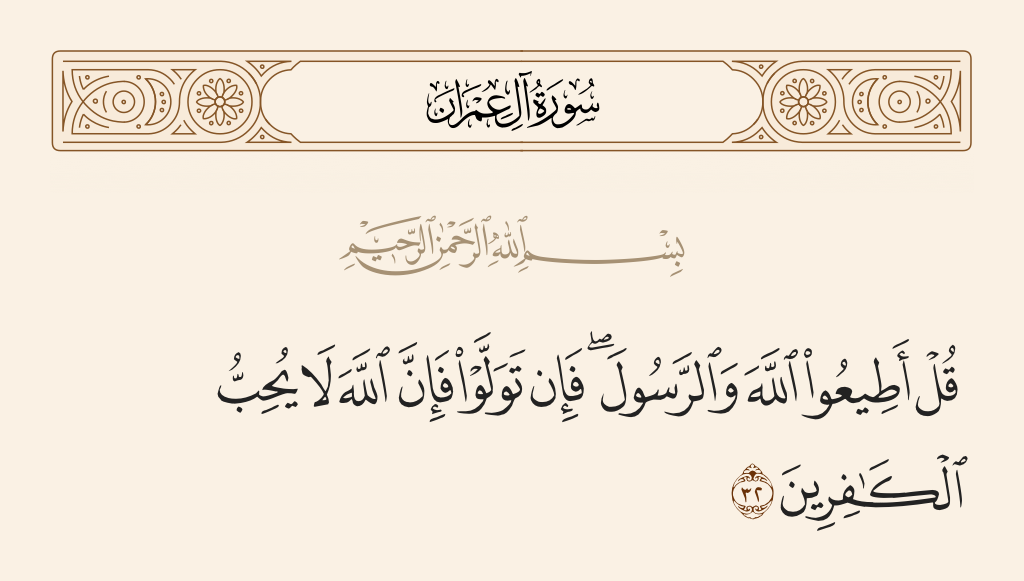 سُورَةُ آلِ عِمْرَانَ
بِسْمِ ٱللَّهِ ٱلرَّحْمَٰنِ ٱلرَّحِيمِ
قُلْ أَطِيعُوا۟ ٱللَّهَ وَٱلرَّسُولَ ۖ فَإِن تَوَلَّوْا۟ فَإِنَّ ٱللَّهَ لَا يُحِبُّ
ٱلْكَـٰفِرِينَ ٣٢